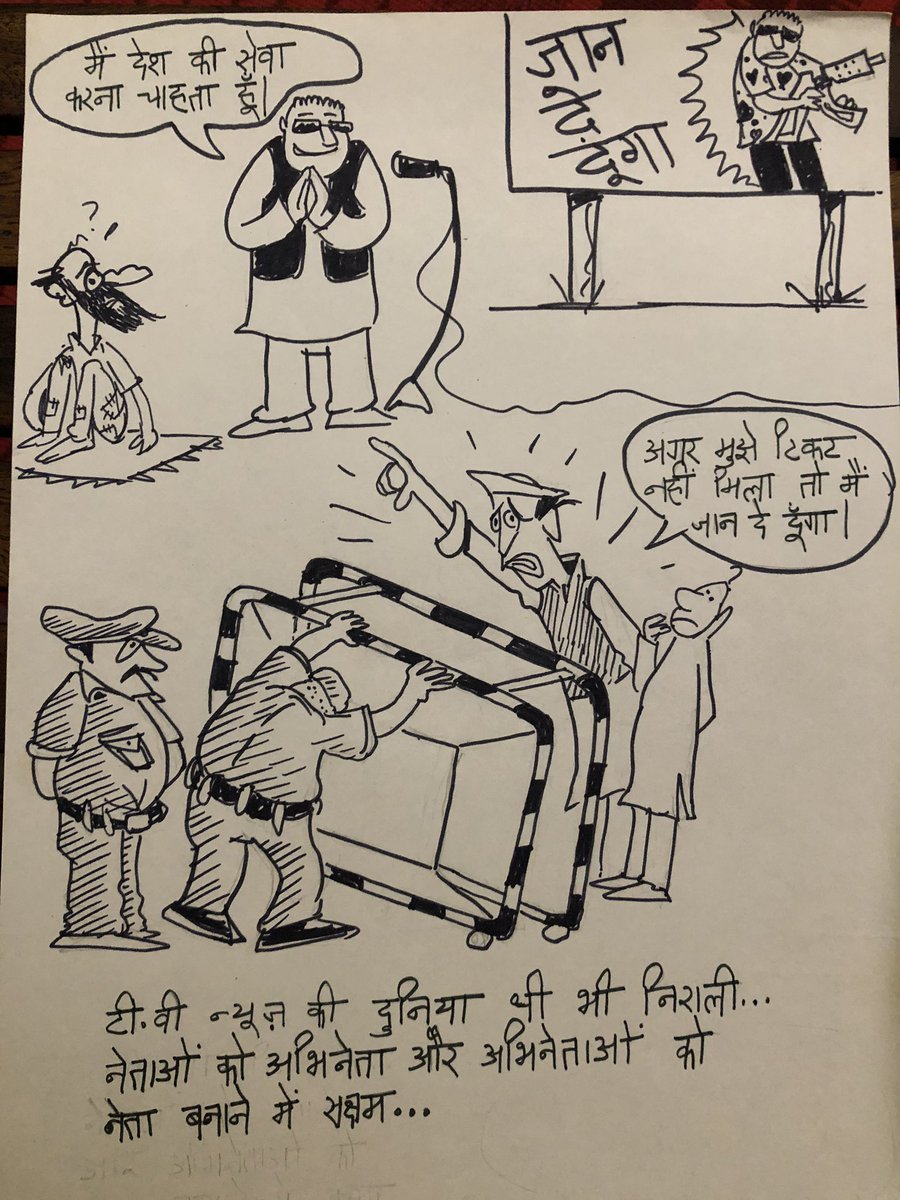 मैं देश की सेवा
करना चाहता हूँ।
जान
ले लूंगा
?!
अगर मुझे टिकट
नहीं मिला तो मैं
जान दे दूँगा।
टी.वी न्यूज़ की दुनिया थी भी निराली...
नेताओं को अभिनेता और अभिनेताओं को
नेता बनाने में सक्षम...